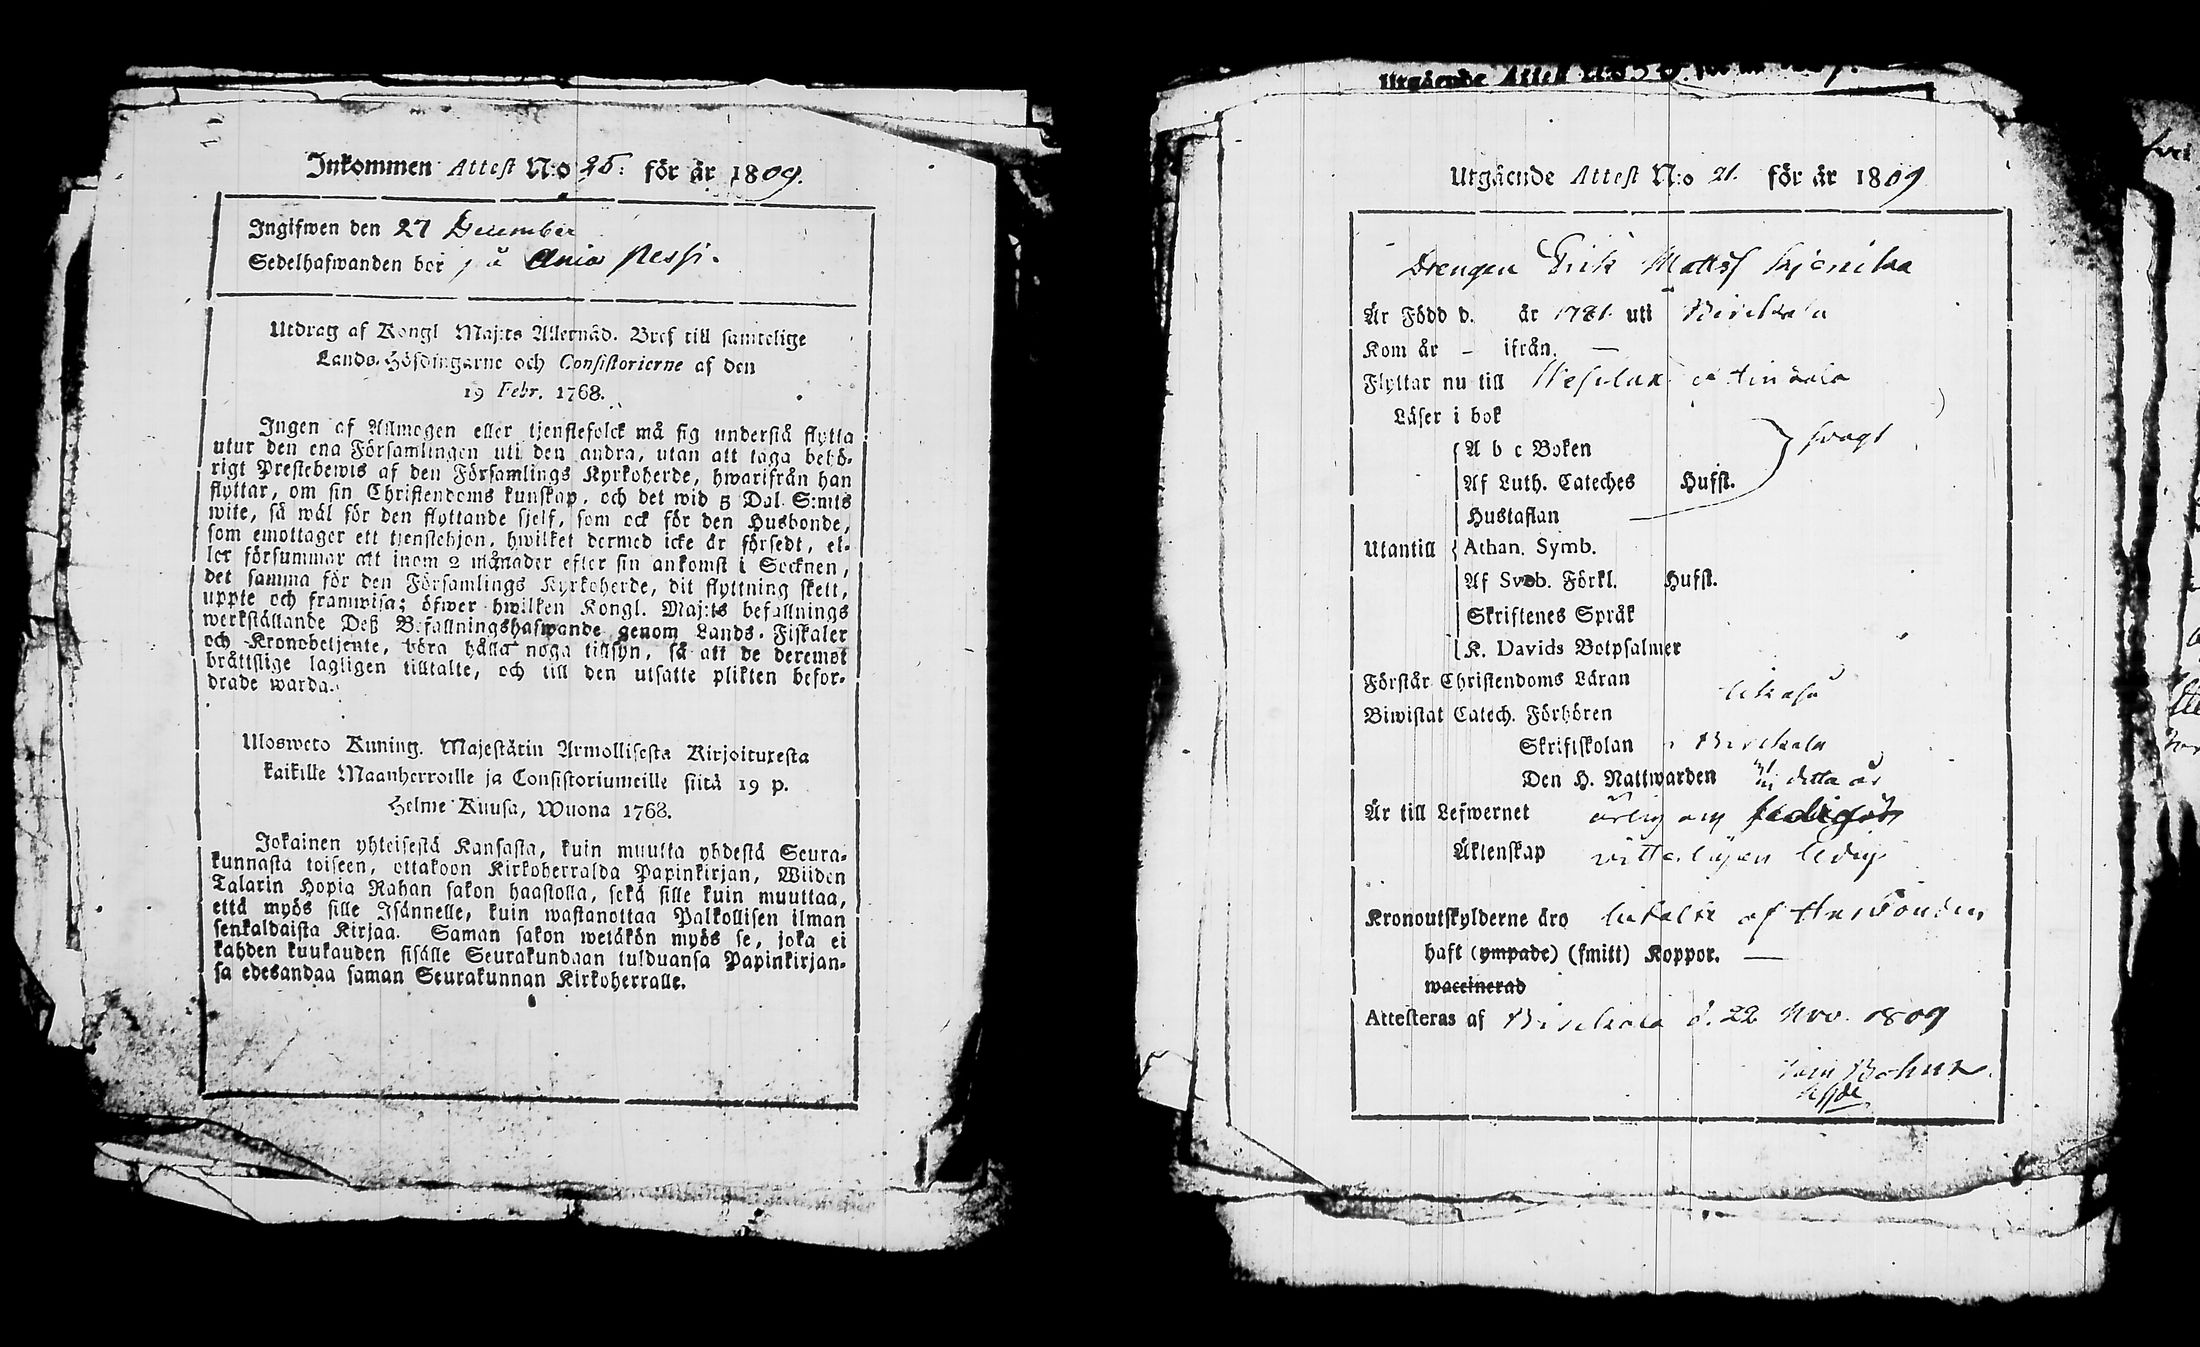 Inkommen Attest N:o 25. för år 1809.
Ingifwen den 27 December
Sedelhafwanden bor på Ania Pessi.
Utdrag af Kongl Maj:ts Allernåd. Bref till samtelige
Lands-Höfdingarne och Consistorierne af den
19 Febr. 1768.
Ingen af Allmogen eller tjenstefolck må sig understå flytta
utur den ena Församlingen uti den andra, utan att taga behö-
rigt Prestebewis af den Församlings Kyrkoherde, hwarifrån han
flyttar, om sin Christendoms kunskap, och det wid 5 Dal. S:mts
wite, så wäl för den flyttande sjelf, som ock för den Husbonde,
som emottager ett tjenstehjon, hwilket dermed icke är försedt, el-
ler försummar att inom 2 månader efter sin ankomst i Socknen,
det samma för den Församlings Kyrkoherde, dit flyttning skett,
uppte och framwisa; öfwer hwilken Kongl. Maj:ts befallnings
werkställande Deß Befallningshafwande genom Lands-Fiskaler
och Kronobetjente, böra hålla noga tillsyn, så att de deremot
bråttslige lagligen tilltalte, och till den utsatte plikten befor-
drade warda.
Ulosweto Kuning. Majestätin Armollisesta Kirjoituxesta
kaikille Maanherroille ja Consistoriumeille siitä 19 p.
Helme Kuusa, Wuona 1768.
Jokainen yhteisestä Kansasta, kuin muutta yhdestä Seura-
kunnasta toiseen, ottakoon Kirkoherralda Papinkirjan, Wiiden
Talarin Hopia Rahan sakon haastolla, sekä sille kuin muuttaa,
että myös sille Isännelle, kuin wastanottaa Palkollisen ilman
senkaldaista Kirjaa. Saman sakon wetäkön myös se, joka ei
kahden kuukauden sisälle Seurakundaan tulduansa Papinkirjan-
sa edesandaa saman Seurakunnan Kirkoherralle.
Utgående Attest
Utgående Attest N:o 21. för år 1809
Drengen Erik Mattss
Är Född d. år 1781. uti Birckala
Kom år – ifrån. —
Flyttar nu till
Läser i bok
A b c Boken svagt
Af Luth. Cateches Hufst.
Hustaflan
Utantill Athan. Symb.
Af Sveb. Förkl. Hufst.
Skriftenes Språk
K. Davids Botpsalmer
Förstår Christendoms Läran likaså
Biwistat Catech. Förhören
Skriftskolan i Birckala
Den H. Nattwarden detta år
Är till Lefwernet ärlig och
Äktenskap witterligen ledig
Kronoutskylderne äro betalte af Husbonden
haft (ympade) (smitt) Koppor. —
waccinerad
Attesteras af Birckala d. 22 Nov. 1809